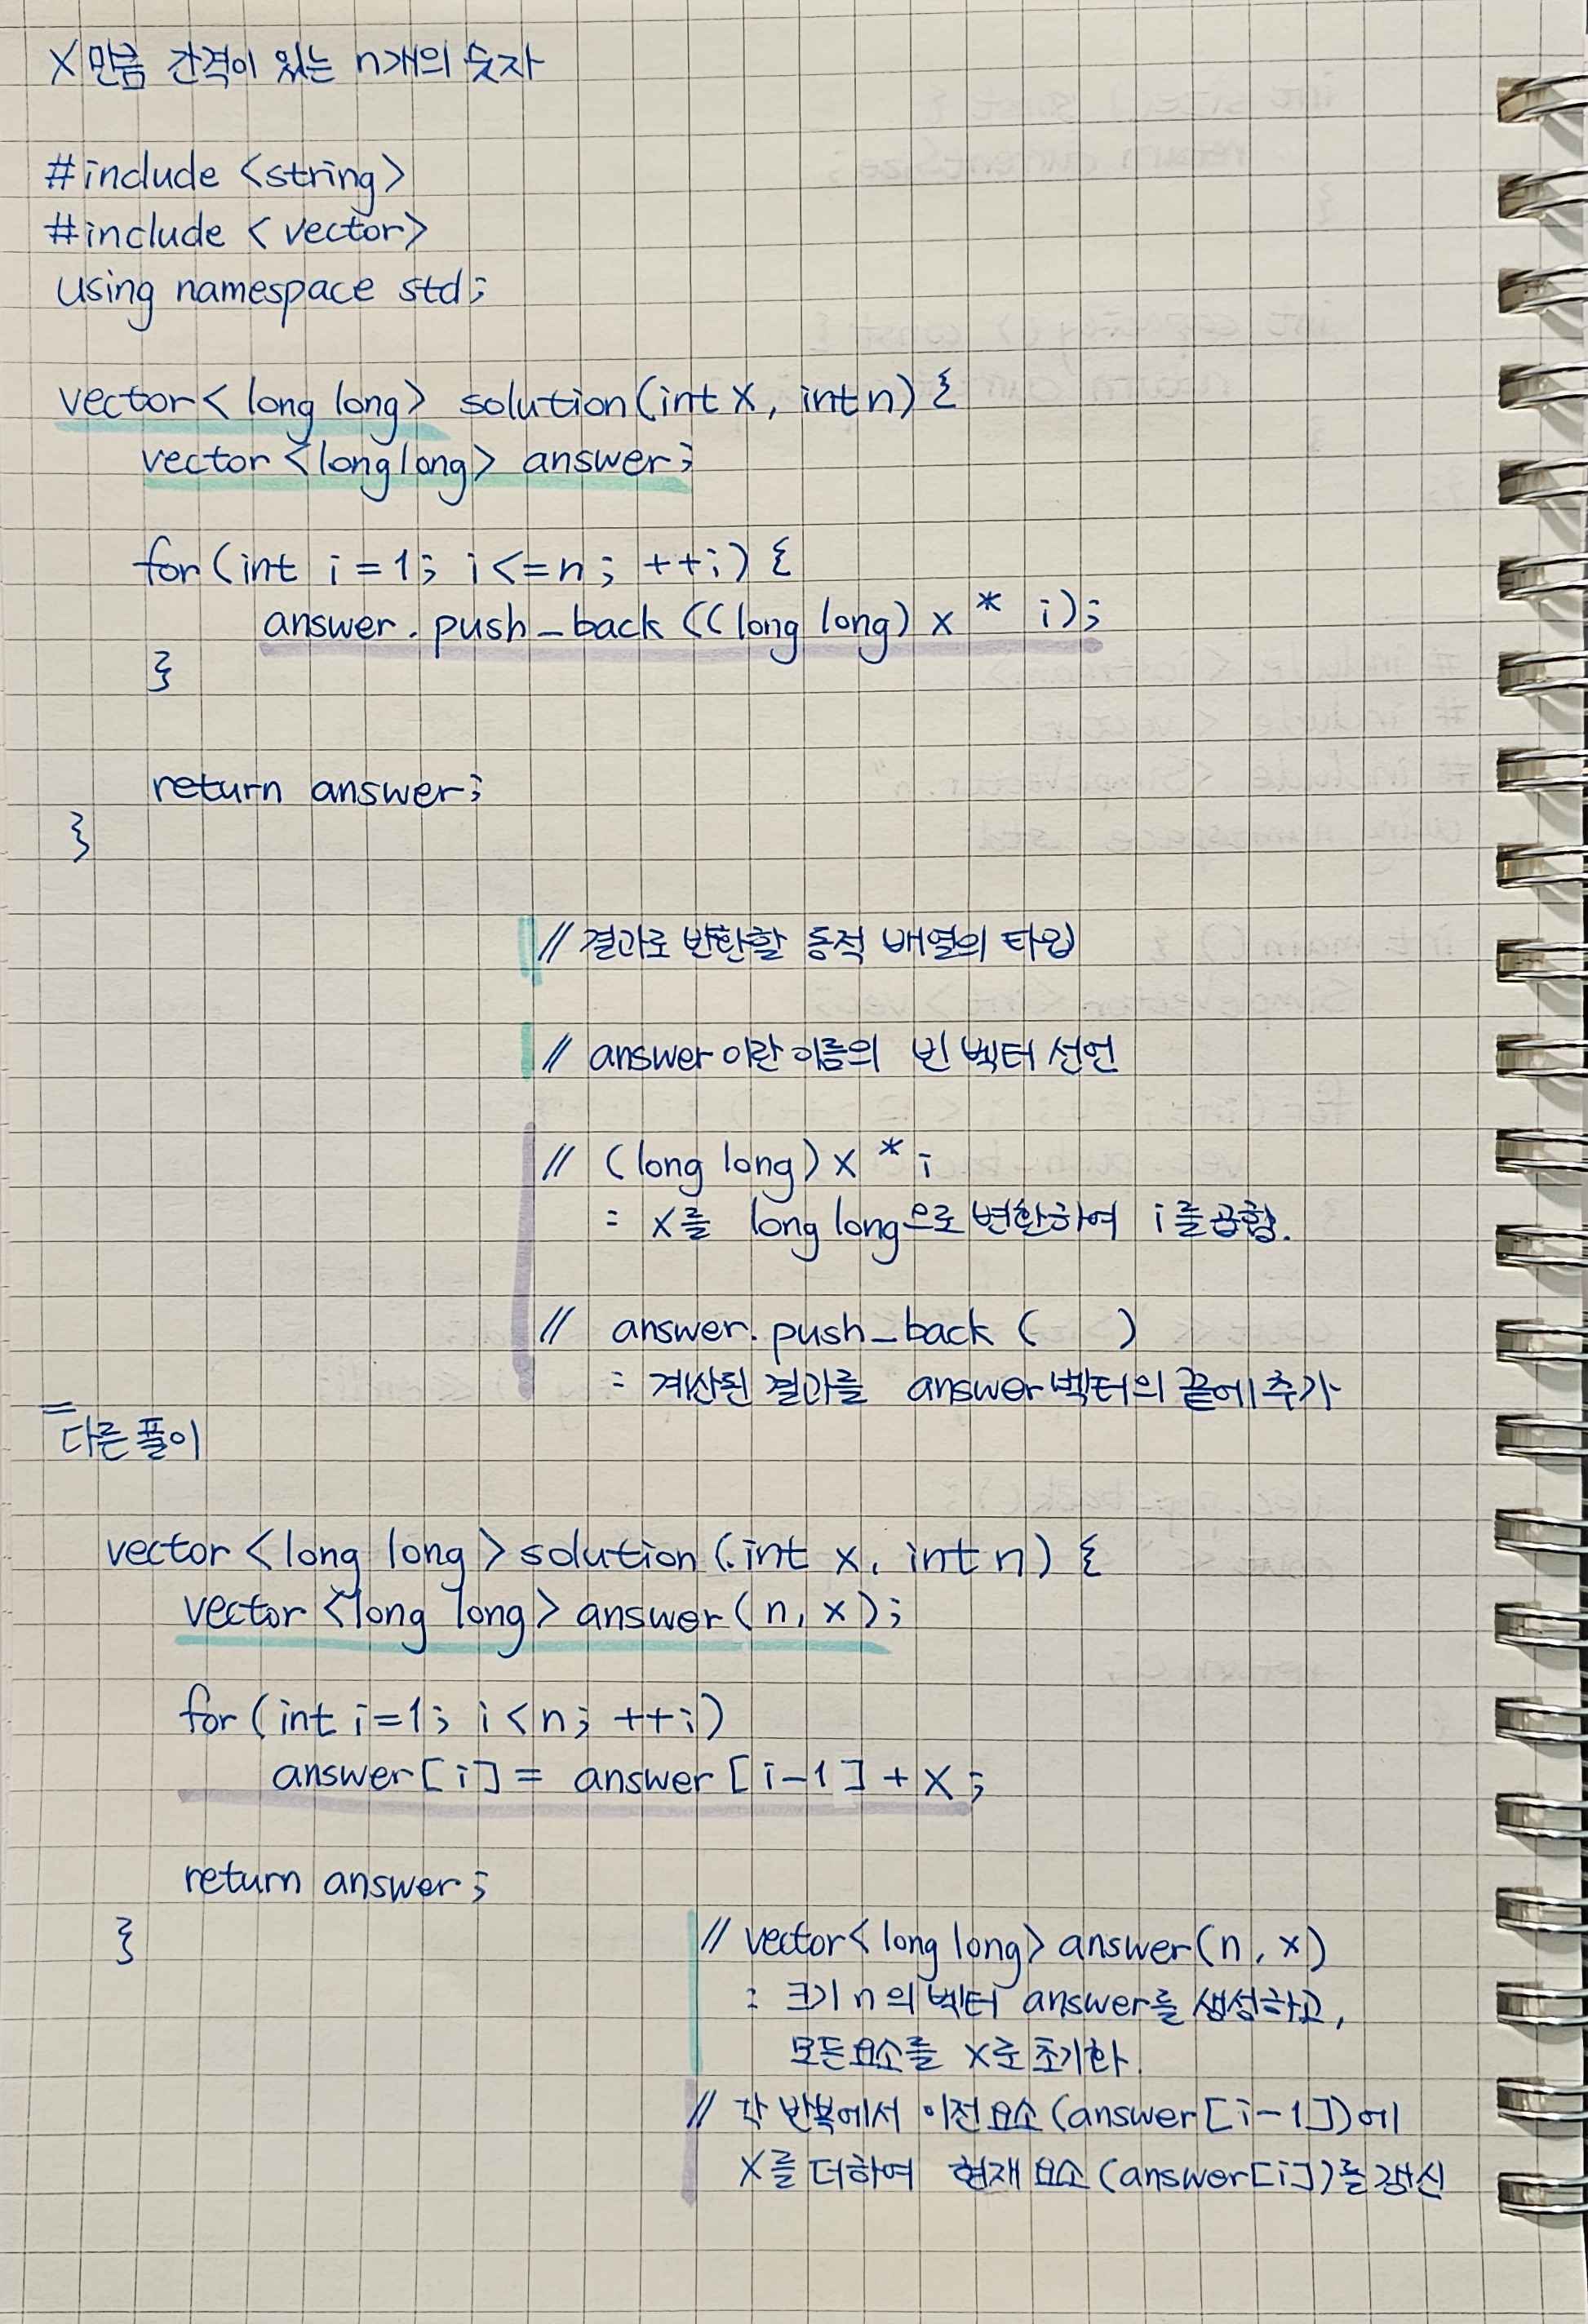 x만큼 간격이 있는 n개의 숫자
#include <string>
#include <vector>
using namespace std;
vector<long long> solution(int x, int n) {
vector<long long> answer;
for(int i=1; i<=n; ++i) {
answer.push_back((long long) x * i);
}
return answer;
}
// 결과로 반환할 동적 배열의 타입
// answer이란 이름의 빈 벡터 선언
// (long long) x * i
: x를 long long으로 변환하여 i를 곱함.
// answer.push_back( )
: 계산된 결과를 answer벡터의 끝에 추가
다른 풀이
vector<long long> solution(int x, int n) {
vector<long long> answer(n, x);
for(int i=1; i<n; ++i)
answer[i] = answer[i-1] + x;
return answer;
}
// vector<long long> answer(n, x)
: 크기 n의 벡터 answer를 생성하고,
모든 요소를 x로 초기화.
// 각 반복에서 이전 요소(answer[i-1])에
x를 더하여 현재 요소(answer[i])를 갱신